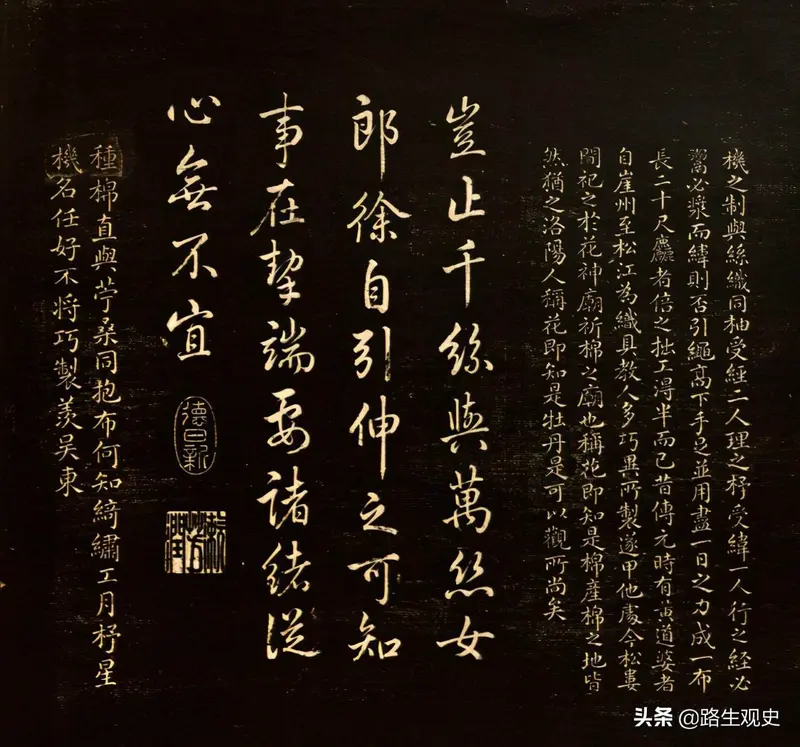 機之制與絲織同柚受經二人理之杼受緯一人行之經必
鬻必漿而緯則否引繩高下手足並用盡一日之力成一布
長二十尺麤者倍之拙工得半而已昔傳元時有黃道婆者
自崖州至松江為織具教人多巧異所製遂甲他處今松婁
間祀之於花神廟祈棉之廟也稱花即知是棉產棉之地皆
然猶之洛陽人稱花即知是牡丹是可以觀所尚矣
豈止千絲與萬絲女
郎徐自引伸之可知
事在挈端要諸緒從
心無不宜
德日新
漱芳潤
種棉直與苧桑同抱布何知綺繡工月杼星
機名任好不將巧製羨吳東
头条 @路生观史